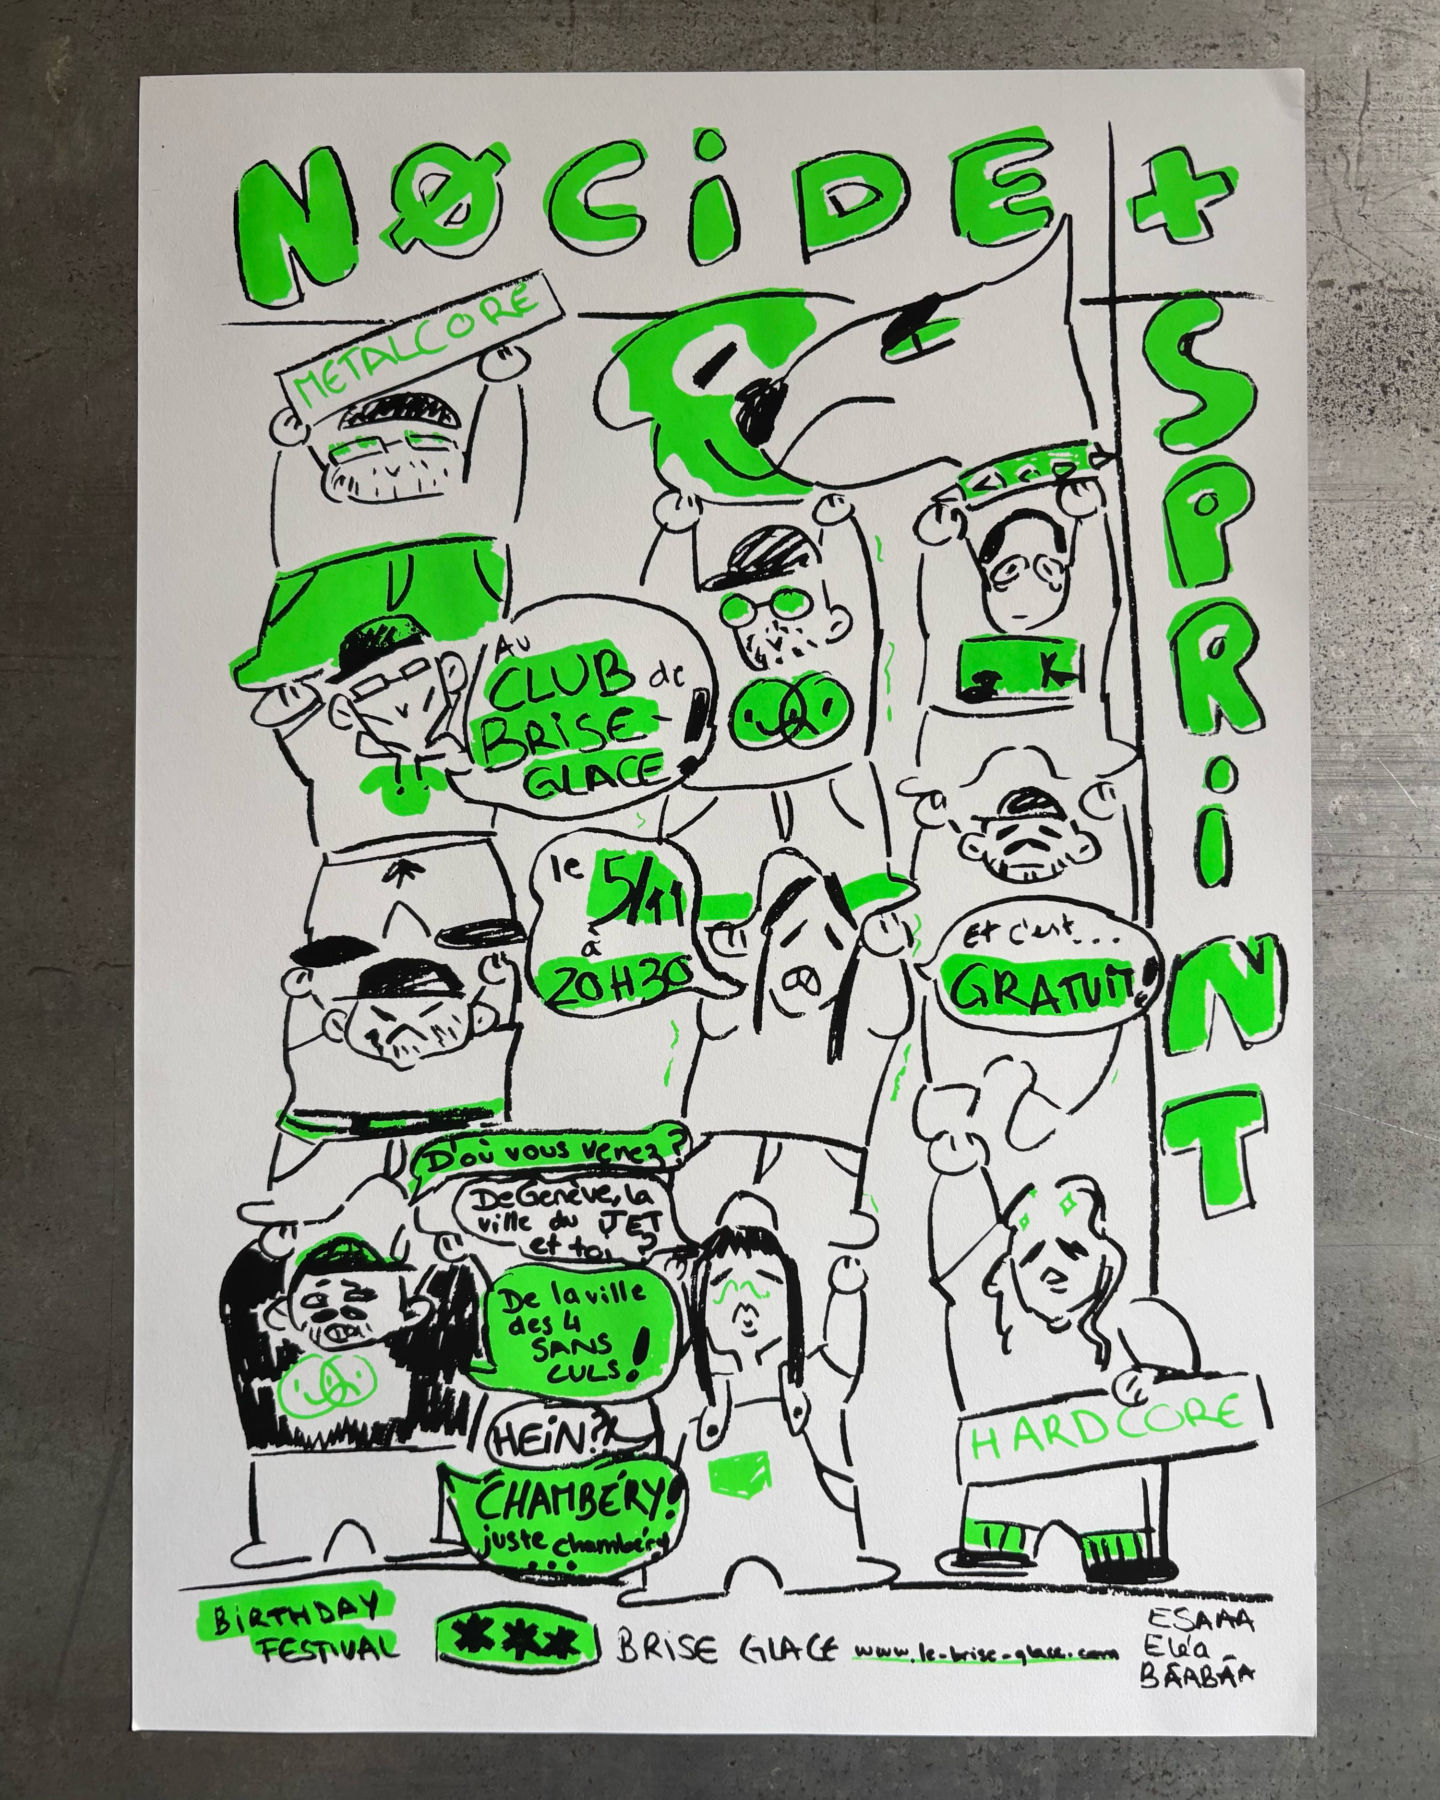 NØCiDE +
SPRiNT
METALCORE
AU
CLUB de
BRiSE-
GLACE
le 5/11
à
20H30
Et c'est...
GRATUIT!
D'où vous venez?
De Genève, la
ville du JET
et toi ?
De la ville
des 4
SANS
CULS!
HEiN??
CHAMBÉRY!
juste chambéry
...
HARDCORE
BiRTHDAY
FESTiVAL
*** BRiSE GLACE www.le-brise-glace.com
ESAAA
Eléa
BÂABÂA